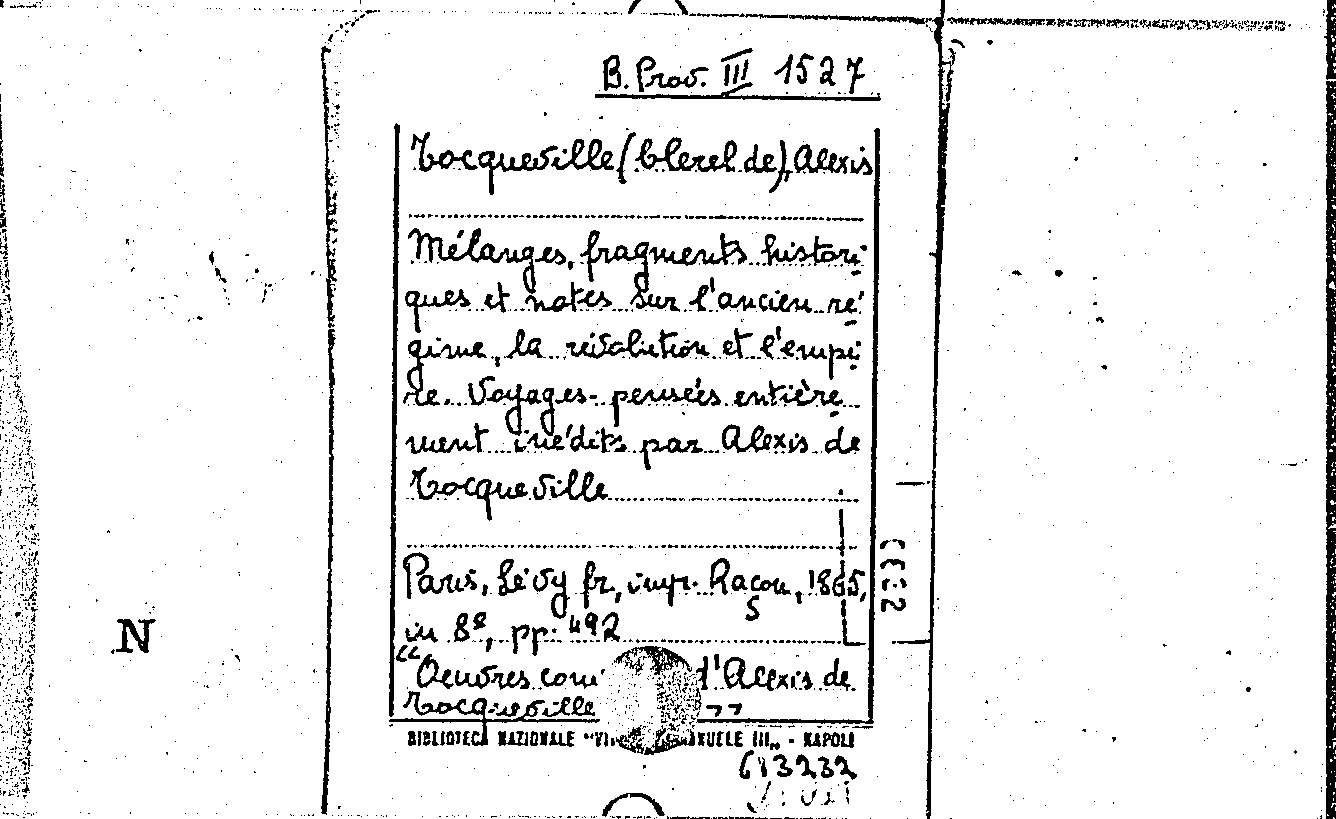 B. Prov. III 1527
Tocqueville (Clerel de), Alexis
Mélanges, fragments histori
ques et notes sur l'ancien ré
gime, la révolution et l'empi
re. Voyages - pensées entière
ment inédits par Alexis de
Tocqueville
Paris, Lévy fr., impr. Racon, 1865,
S
in 8º, pp. 492
N
"Oeuvres com d'Alexis de
Tocqueville "
BIBLIOTECA NAZIONALE "VI EMANUELE III„ - NAPOLI
613232